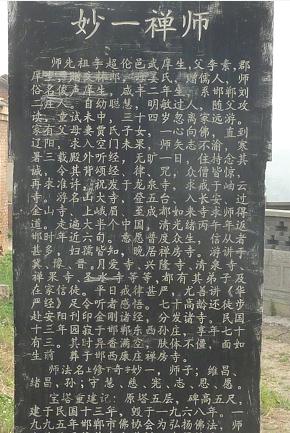 妙一禅师
师先祖季超伦邑武庠生，父季素，郡
俗名俊声庠生，咸丰二年生，系邯郸刘
二庄人，自幼聪慧，明敏过人，随父攻
读。重试未中，三十四岁忽离家远游。
家有父母妻黄氏子女，一心向佛，直到
辽阳，求入空门未果，师矢志不渝，寒
暑三载殿外听经，无旷一日，住持念其
诚，令其背颂经、律、咒，众僧皆惊，
再求准许。祝发于龙泉寺，求戒于岫云
寺。游名山大寺，登五台、入长安，过
金山寺，上峨眉，至成都如来寺求师得
道。走遍大半个中国，清光绪丙午年返
邯时年近六旬。意愿普度众生，信从者
甚多，妇孺皆知，晚居禅房寺。游讲于
冀、豫、晋。月爱寺、兴隆寺、清泉寺、
禅果寺、圣水寺等寺，都有其弟子及
在家信徒。平日戒律甚严，尤善讲《华
严经》足令听者感悟。七十高龄还徒步
赴安阳刊印金刚诸经，分发诸寺。民国
十三年因寂于邯郸东西孙庄，享年七十
有三。其时异香满空，肤体不僵，面如
生前 葬于邯西康庄禅房寺。
师法名上修下奇字妙一，师子；维昌、
绪昌，孙；守慧、慈、宪、志、恩、愿。
宝塔重建记：原塔五层，碑高五尺，
建于民国十三年，毁于一九六八年。一
九九五年邯郸市佛协会为弘扬佛法，师